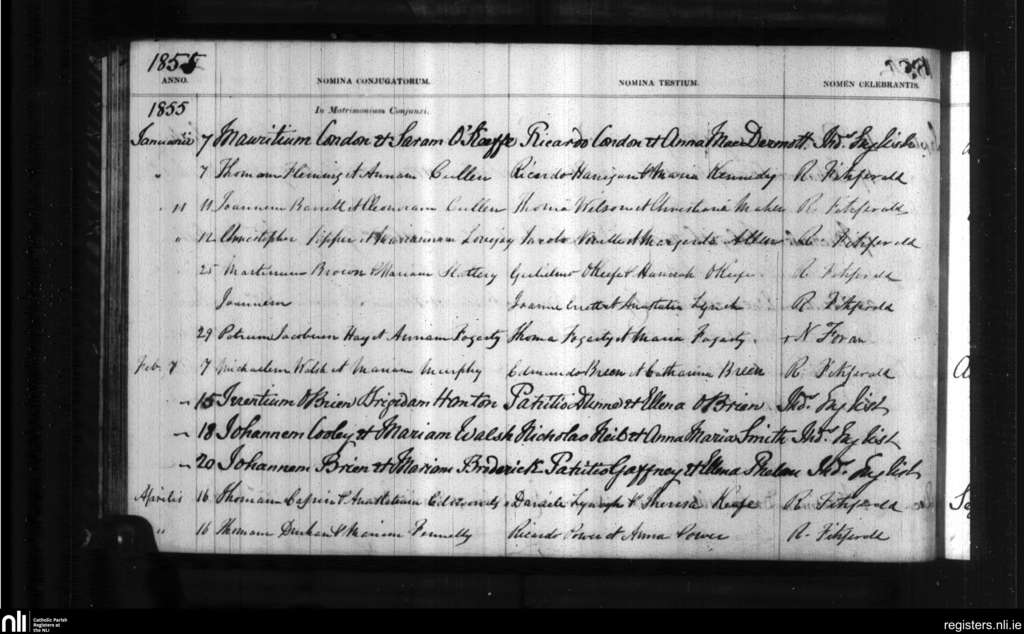 1855
ANNO.
NOMINA CONJUGATORUM.
NOMINA TESTIUM.
NOMEN CELEBRANTIS.
1855
In Matrimonium Conjunxi.
Januarii 7 Mauritium Condon et Saram O'Keeffe Ricardo Condon et Anna MacDermott Thos. English
" 7 Thomam Fleming et Annam Cullen Ricardo Hanigan et Maria Kennedy R. Fitzgerald
" 11 Joannem Barrett et Cullen Thoma Wilson et Christiana Maher R. Fitzgerald
" 12 Christopher Pipper et Mariannam Lovejoy Jacobo et Margarita R. Fitzgerald
25 Martinum Brown et Mariam Slattery Gulielmo O'Keefe et Hannah O'Keefe R. Fitzgerald
Joannem Joanne et Anastatia Lynch R. Fitzgerald
29 Petrum Jacobum Hay et Annam Fogarty Thoma Fogarty et Maria Fogarty. + N Foran
Feb. 7 7 Michaelem Walsh et Mariam Murphy Edmundo Breen et Catharina Breen R. Fitzgerald
" 15 Terentium O'Brien Brigidam Hanton Patritio Dunne et Ellena O'Brien Thos. English
" 18 Johannem Cooley et Mariam Walsh Nicholao Neil et Anna Maria Smith Thos. English
" 20 Johannem Brien et Mariam Broderick Patritio Gaffney et Ellena Phelan Thos. English
Aprilis 16 Thomam et Anastatiam Edwards Daniele et Theresa Keefe R. Fitzgerald
" 16 Thomam et Mariam Fennelly Ricardo Power et Anna Power R. Fitzgerald
nli
Catholic Parish
Registers at
the NLI
registers.nli.ie